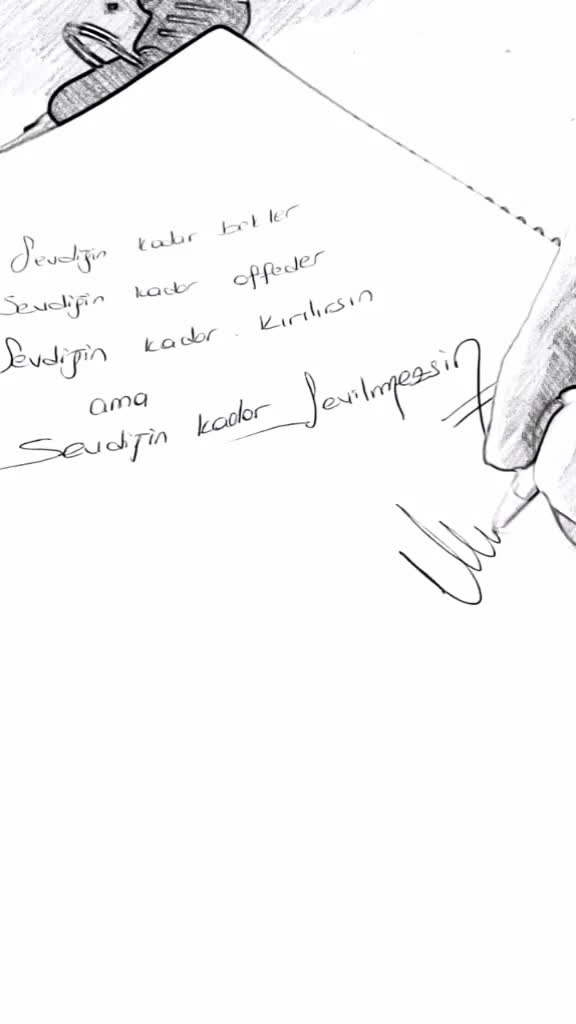 Sevdiğin kadar bekler
Sevdiğin kadar affeder
Sevdiğin kadar kırılırsın
ama
Sevdiğin kadar Sevilmezsin